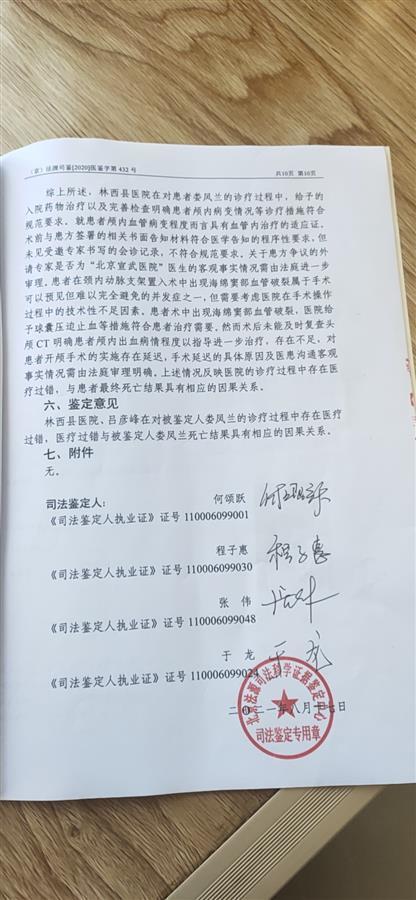 （京）法源司鉴[2020]医鉴字第 432 号
共10页 第10页
综上所述，林西县医院在对患者娄凤兰的诊疗过程中，给予的
入院药物治疗以及完善检查明确患者颅内病变情况等诊疗措施符合
规范要求。就患者颅内血管病变程度而言具有血管内治疗的适应证。
术前与患方签署的相关书面告知材料符合医学告知的程序性要求，但
未见受邀专家书写的会诊记录，不符合规范要求。关于患方争议的外
请专家是否为“北京宣武医院”医生的客观事实情况需由法庭进一步
审理。患者在颈内动脉支架置入术中出现海绵窦部血管破裂属于手术
可以预见但难以完全避免的并发症之一，但需要考虑医院在手术操作
过程中的技术性不足因素。患者术中出现海绵窦部血管破裂，医院给
予球囊压迫止血等措施符合患者治疗需要。然而术后未能及时复查头
颅 CT 明确患者颅内出血病情程度以指导进一步治疗，存在不足，对
患者开颅手术的实施存在延迟，手术延迟的具体原因及医患沟通客观
事实情况需由法庭审理明确。上述情况反映医院的诊疗过程中存在医
疗过错，与患者最终死亡结果具有相应的因果关系。
六、鉴定意见
林西县医院、吕彦峰在对被鉴定人娄凤兰的诊疗过程中存在医疗
过错，医疗过错与被鉴定人娄凤兰死亡结果具有相应的因果关系。
七、附件
无。
司法鉴定人：
何颂跃
《司法鉴定人执业证》证号 110006099001
程子惠
程子惠
《司法鉴定人执业证》证号 110006099030
张 伟
《司法鉴定人执业证》证号 110006099048
于 龙
于龙
《司法鉴定人执业证》证号 110006099024
北京法源司法科学证据鉴定中心
二〇二一年八月十七日
司法鉴定专用章